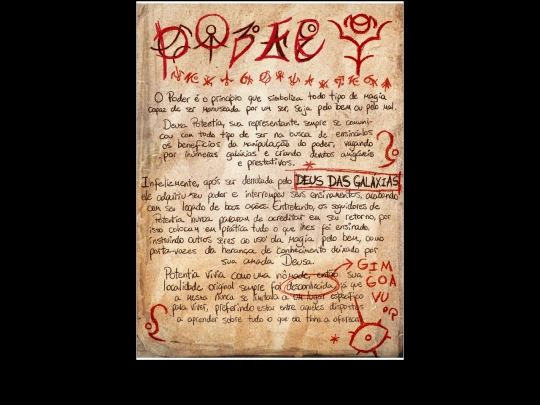 PODER
O Poder é o princípio que simboliza todo tipo de magia
capaz de ser manuseada por um ser, seja pelo bem ou pelo mal.
Deusa Potentia, sua representante sempre se comuni-
cou com todo tipo de ser na busca de ensiná-los
os benefícios da manipulação do poder, vagando
por inúmeras galáxias e criando dentos amigáveis
e prestativos.
Infelizmente, após ser derrotada pelo DEUS DAS GALÁXIAS
ele adquitiu seu poder e interrompeu seus ensinamentos, acabando
com seu legado de boas ações. Entretanto, os seguidores de
Potentia nunca pararam de acreditar em seu retorno, por
isso colocam em prática tudo o que lhes foi ensinado,
instruindo outros seres ao uso da magia pelo bem, como
porta-vozes da herança de conhecimento deixado por
sua amada Deusa.
Potentia vivia como uma nômade, então sua
localidade original sempre foi desconhecida, já que
a mesma nunca se limitava a um lugar específico
para viver, preferindo estar entre aqueles dispostos
a aprender sobre tudo o que ela tinha a oferecer.
GIM
GOA
VU